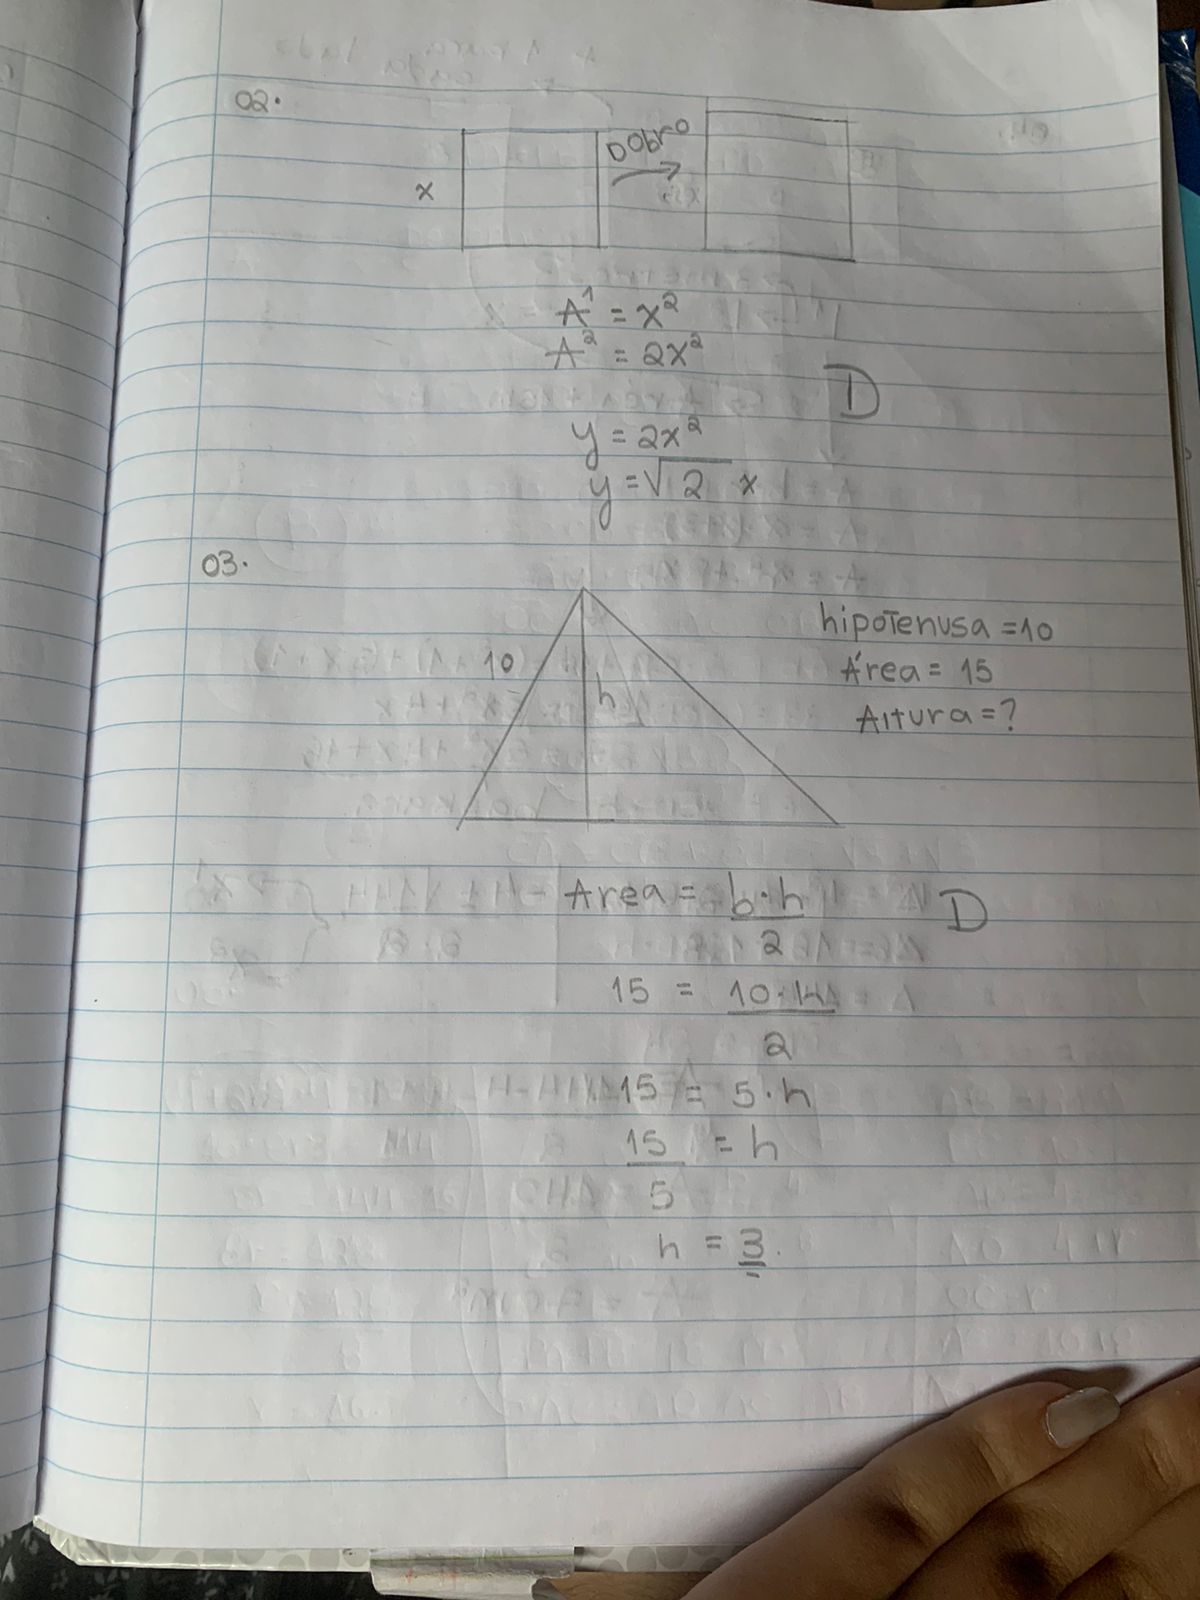 02.
x
DObrO
A¹ = x²
A² = 2x²
D
y = 2x²
y = √2 x
03.
10
h
hipotenusa = 10
Área = 15
Altura = ?
Area = b·h
2
D
15 = 10·h
2
15 = 5·h
15 = h
5
h = 3.